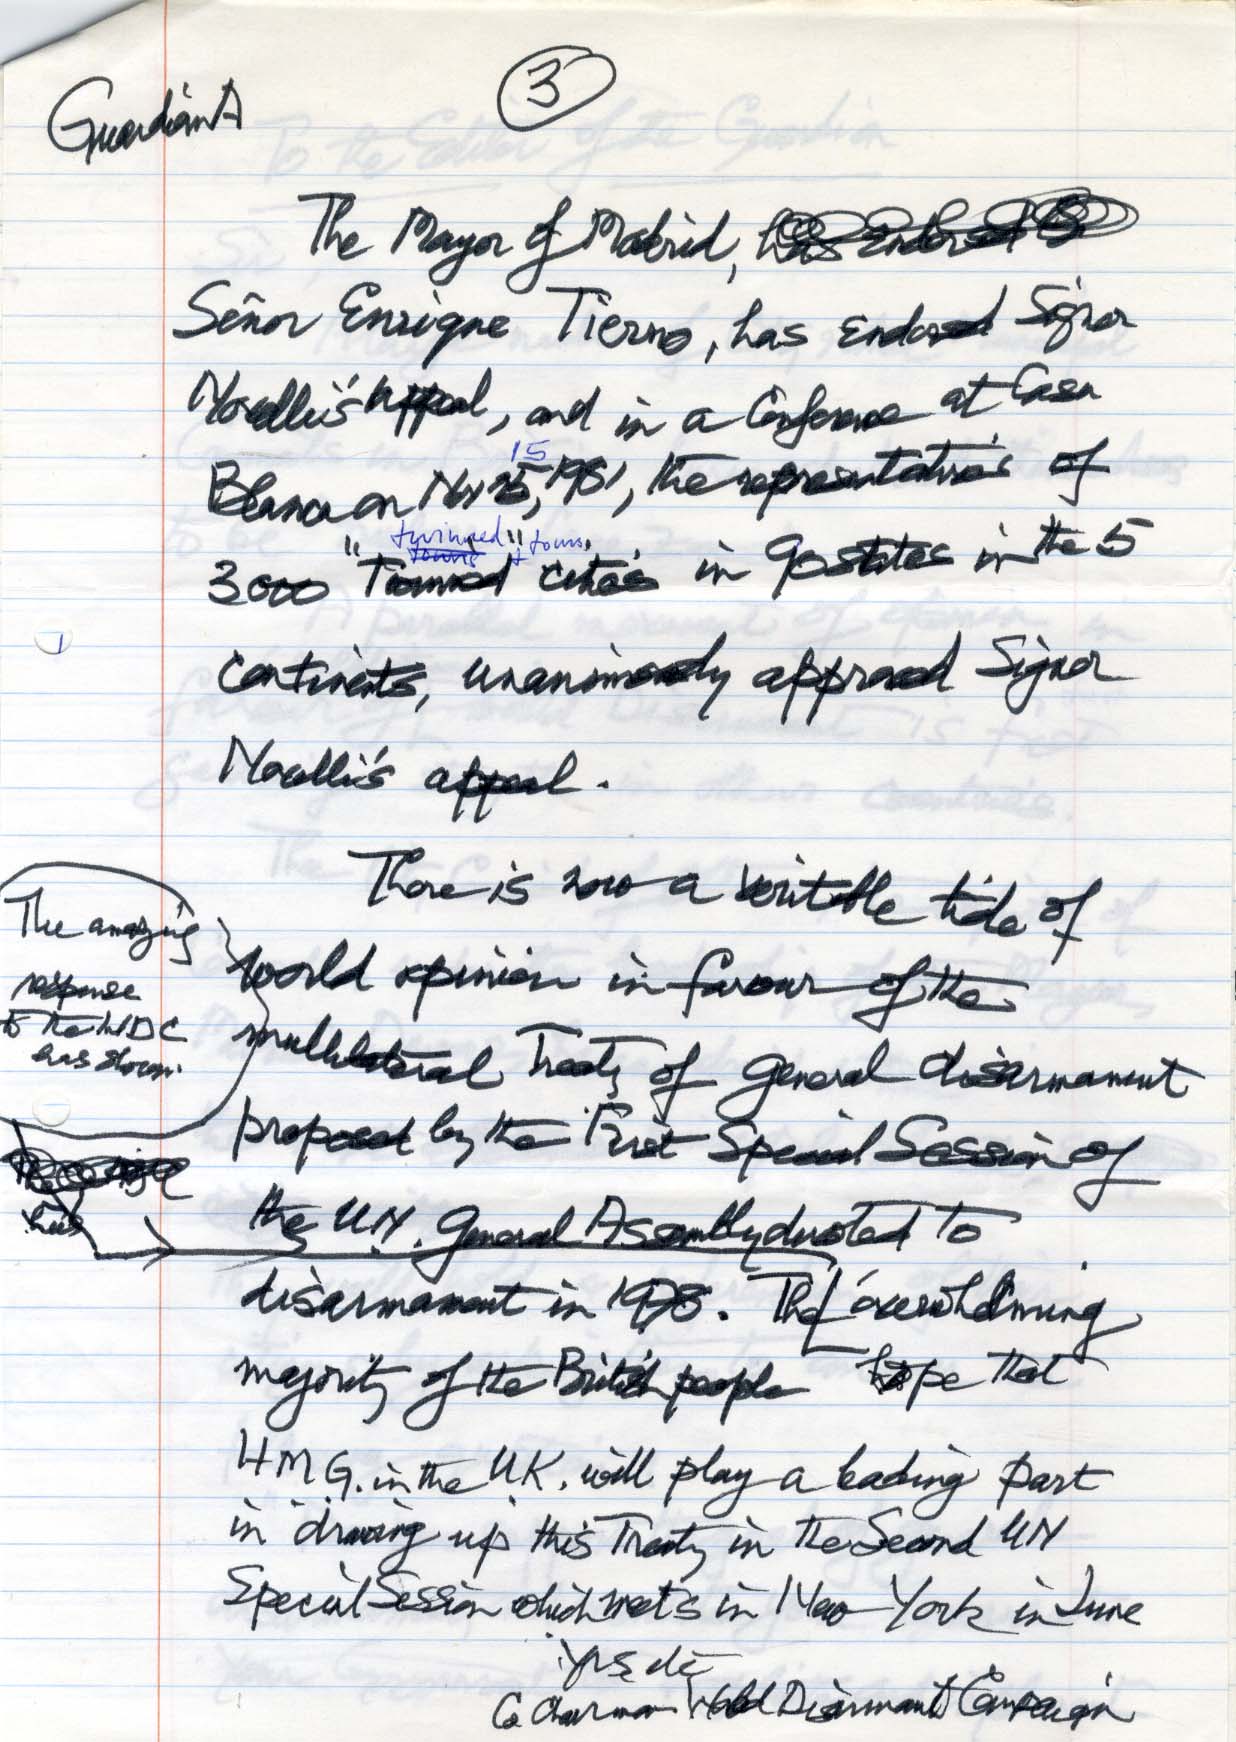 Guardian A
3
The Mayor of Madrid, has endorsed
Señor Enrique Tierno, has endorsed Signor
Novelli's appeal, and in a Conference at Casa
15
Blanca on Nov 25, 1981, the representatives of
twinned" & towns,
towns
3000 "Twinned cities in 90 states in the 5
continents, unanimously approved Signor
Novelli's appeal.
There is now a veritable tide of
world opinion in favour of the
multilateral Treaty of general disarmament
proposed by the First Special Session of
the U.N. General Assembly devoted to
disarmament in 1978. The overwhelming
majority of the British people hope that
H.M.G. in the U.K. will play a leading part
in drawing up this Treaty in the Second UN
Special Session which meets in New York in June
Yrs etc
Co Chairman World Disarmament Campaign
The amazing
response
to the WDC
has shown.
has